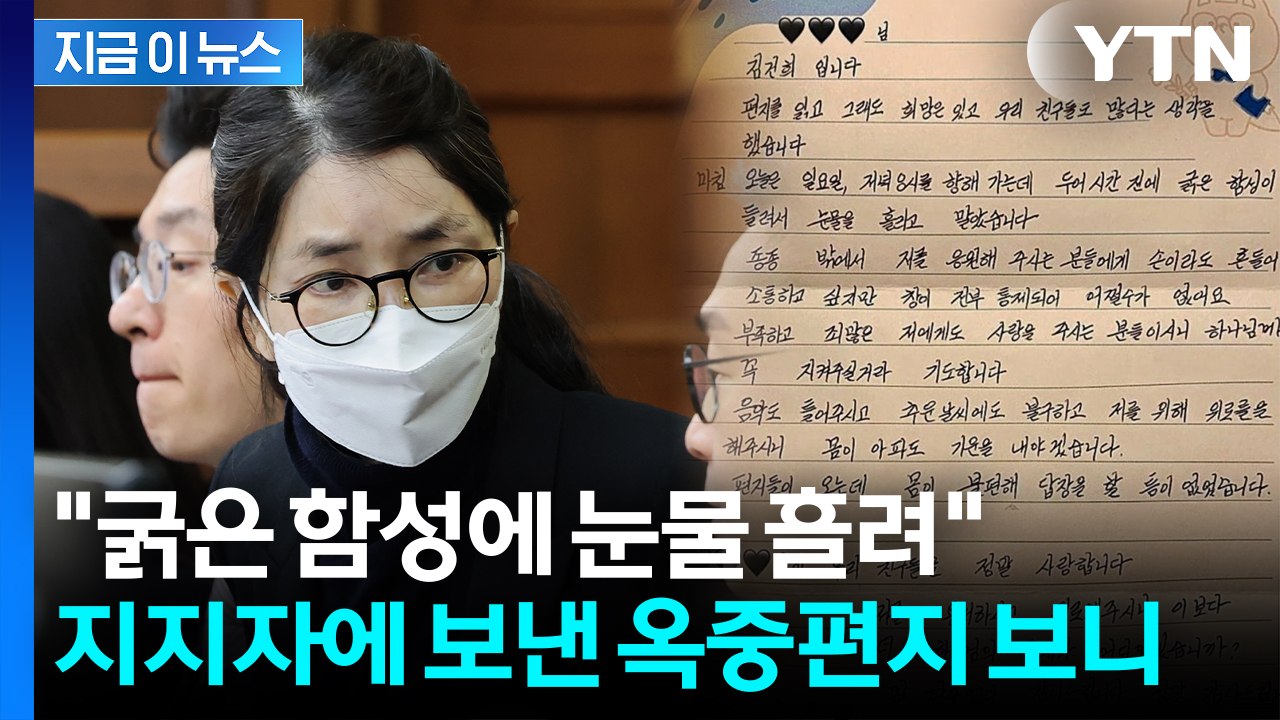 지금 이 뉴스
YTN
님
김건희 입니다
편지를 읽고 그래도 희망은 있고 우리 친구들도 많다는 생각을
했습니다
마침 오늘은 일요일, 저녁 8시를 향해 가는데 두어 시간 전에 굵은 함성이
들려서 눈물을 흘리고 말았습니다
종종 밖에서 저를 응원해 주시는 분들에게 손이라도 흔들어
소통하고 싶지만 창이 전부 통제되어 어쩔수가 없어요
부족하고 죄많은 저에게도 사랑을 주시는 분들이시니 하나님께
꼭 지켜주실거라 기도합니다
음악도 틀어주시고 추운날씨에도 불구하고 저를 위해 위로를
해주시니 몸이 아파도 기운을 내야겠습니다.
편지들이 오는데 몸이 불편해 답장을 할 틈이 없었습니다.
친구들 정말 사랑합니다
이보다
있습니까?
"굵은 함성에 눈물 흘려"
지지자에 보낸 옥중편지 보니